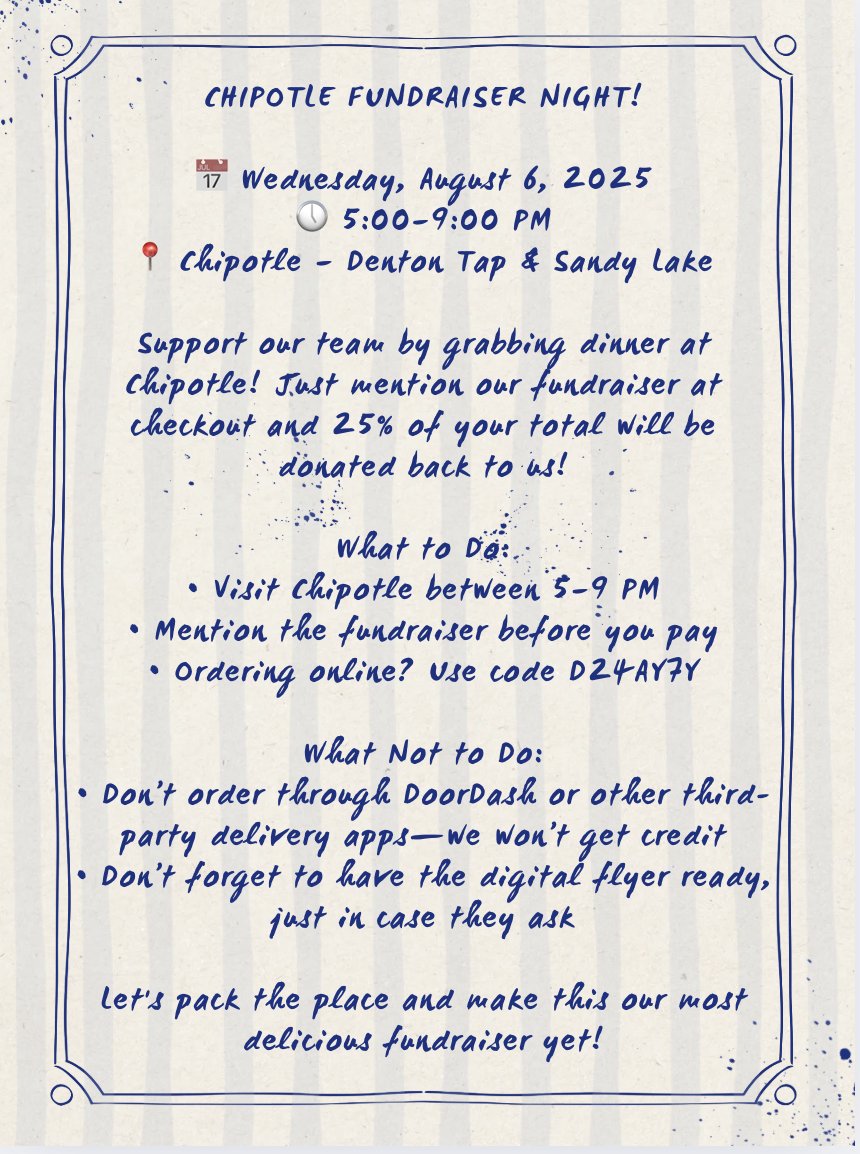 CHIPOTLE FUNDRAISER NIGHT!
JUL
17
Wednesday, August 6, 2025
5:00–9:00 PM
Chipotle – Denton Tap & Sandy Lake
Support our team by grabbing dinner at
Chipotle! Just mention our fundraiser at
checkout and 25% of your total will be
donated back to us!
What to Do:
• Visit Chipotle between 5–9 PM
• Mention the fundraiser before you pay
• Ordering online? Use code D24AY7Y
What Not to Do:
• Don't order through DoorDash or other third-
party delivery apps—we won't get credit
• Don't forget to have the digital flyer ready,
just in case they ask
Let's pack the place and make this our most
delicious fundraiser yet!